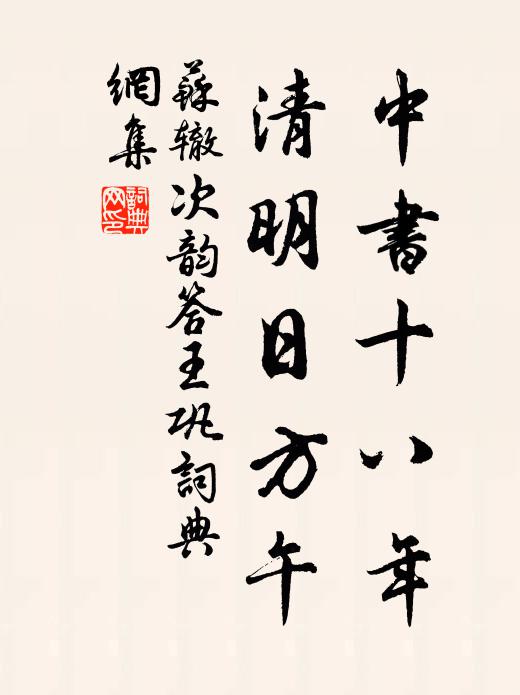 中書十八年
清明日方午
蘇辙次韵答王巩詞典
網集
詞典
网印